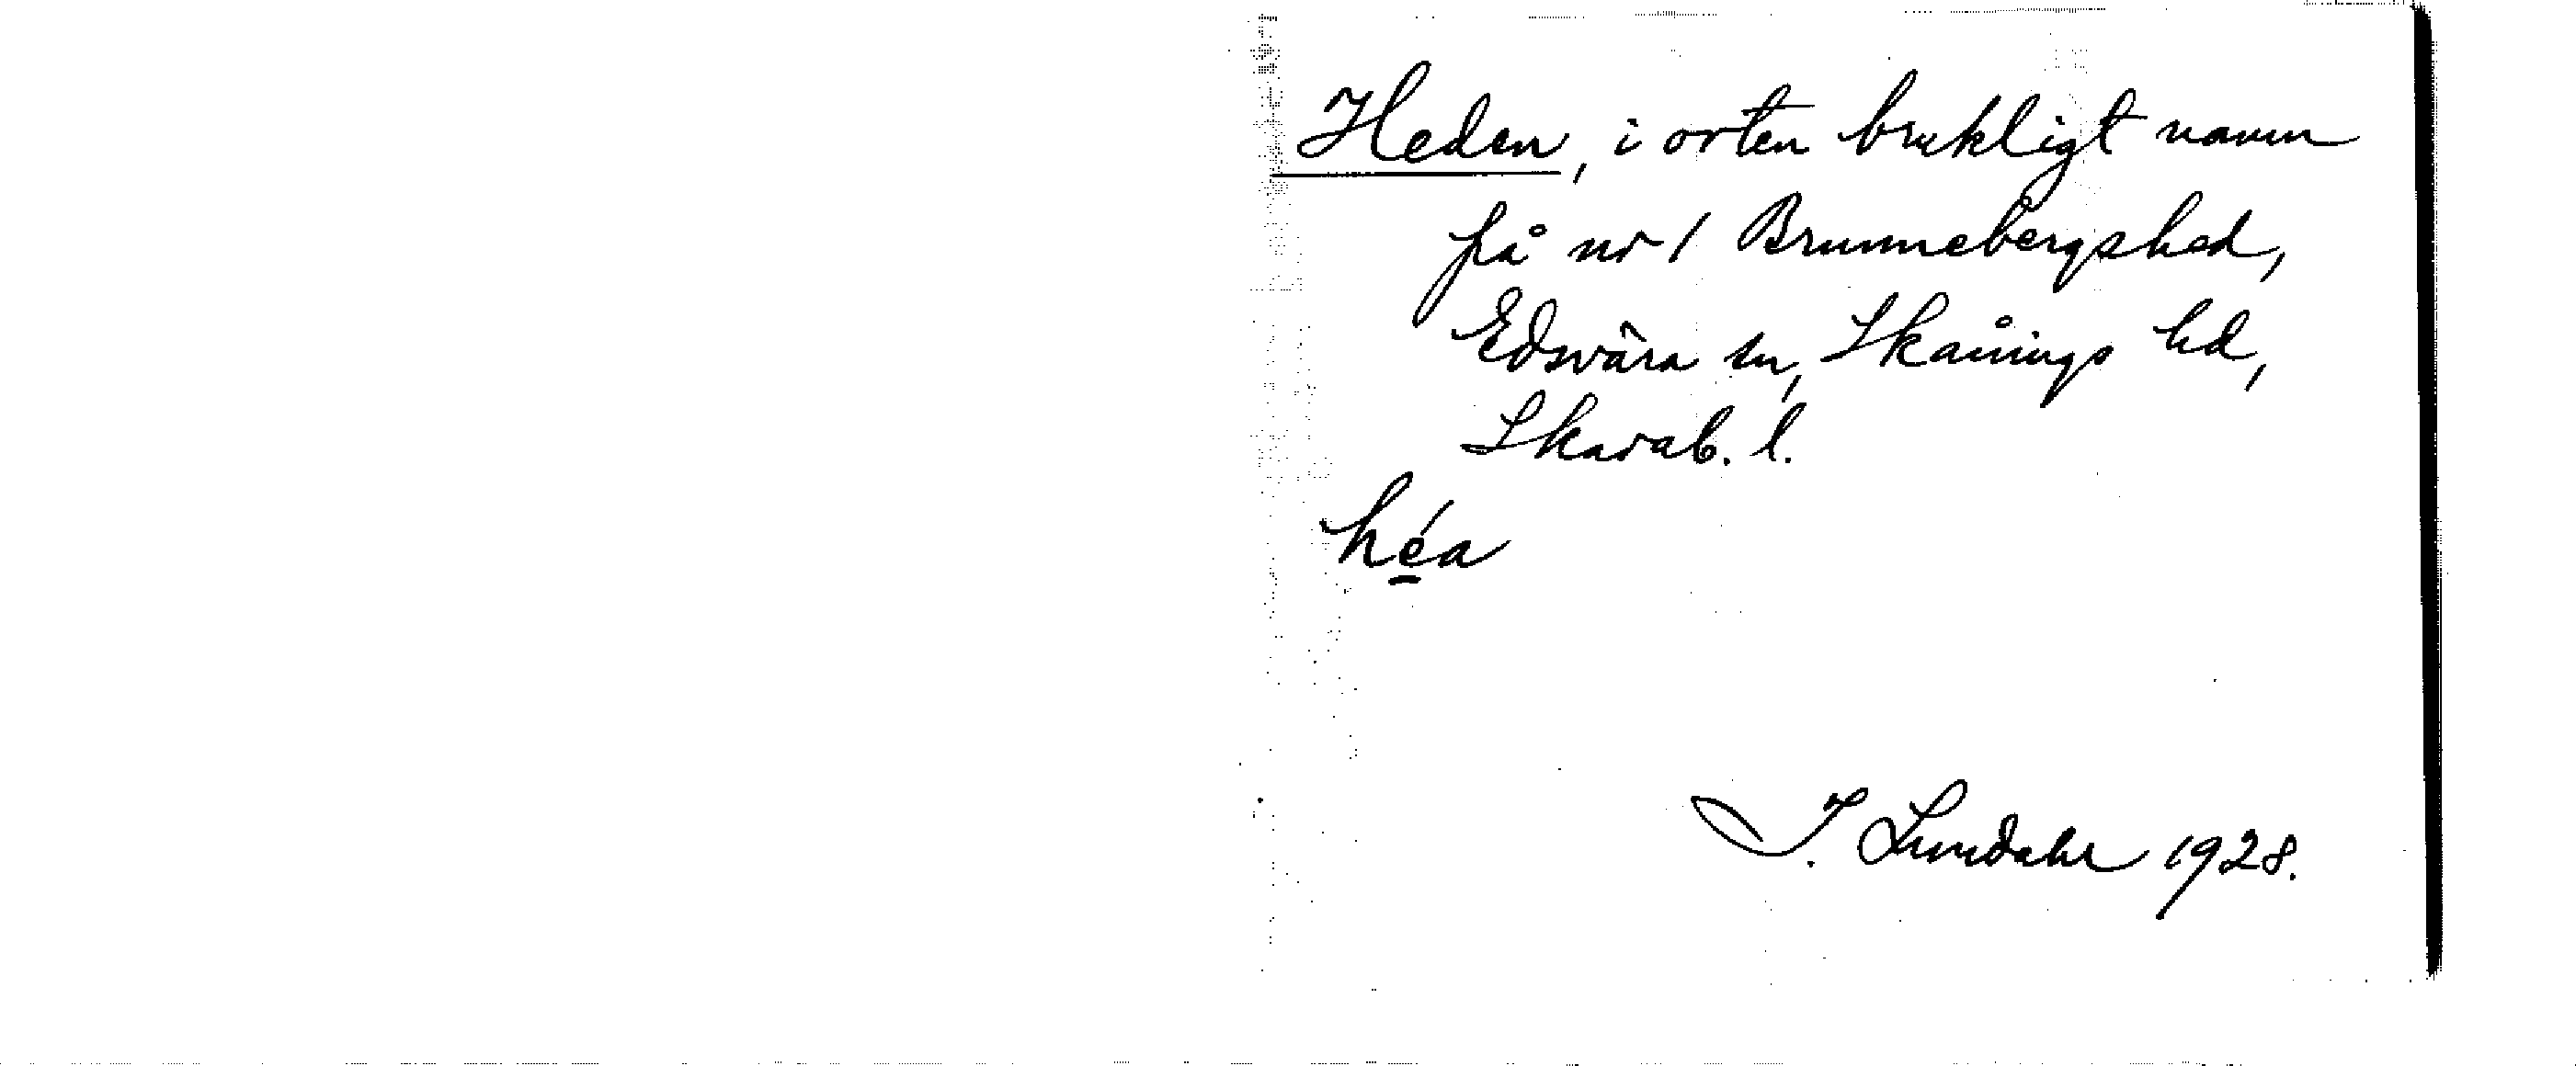 Heden, i orten brukligt namn
på nr 1 Brunnebergshed,
Edsvära sn, Skånings hd,
Skarab. l.
héa
I. Lundahl 1928.